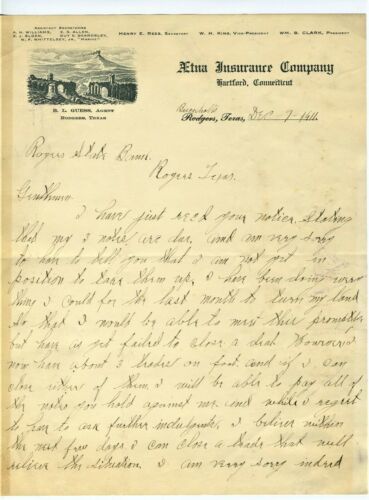 Assistant Secretaries
A. N. WILLIAMS, E. S. ALLEN,
E. J. SLOAN, GUY E. BEARDSLEY,
W. F. WHITTELSEY, JR., "MARINE"
HENRY E. REES, SECRETARY
W. H. KING, VICE-PRESIDENT
WM. B. CLARK, PRESIDENT
Ætna Insurance Company
Hartford, Connecticut
R. L. GUESS, AGENT
RODGERS, TEXAS
Rodgers, Texas, Dec 7 1911
Rogers State Bank
Rogers Texas.
Gentlemen
I have just recd your notices stating
that my 3 notes are due, and am very sorry
to have to tell you that I am not yet in
position to take them up, I have been doing every
thing I could for the last month to turn my land
so that I would be able to meet these promptly
but have as yet failed to close a deal. However I
now have about 3 trades on foot and if I can
close either of them, I will be able to pay all of
the notes you hold against me and while I regret
to have to ask further indulgence, I believe within
the next few days I can close a trade that will
relieve the situation. I am very sorry indeed